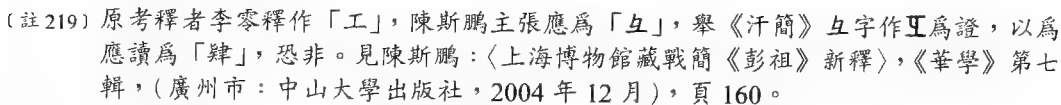 〔註 219〕原考釋者李零釋作「工」，陳斯鵬主張應爲「彑」，舉《汗簡》彑字作爲證，以爲
應讀爲「肄」，恐非。見陳斯鵬：〈上海博物館藏戰簡《彭祖》新釋〉，《華學》第七
輯，（廣州市：中山大學出版社，2004 年 12 月），頁 160。